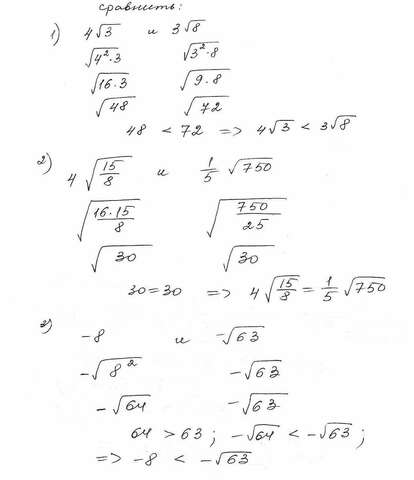 сравнить:
1) 4√3 и 3√8
√4²·3 √3²·8
√16·3 √9·8
√48 √72
48 < 72 => 4√3 < 3√8
2) 4√15/8 и 1/5 √750
√16·15/8 √750/25
√30 √30
30=30 => 4√15/8 = 1/5 √750
3) -8 и -√63
-√8² -√63
-√64 -√63
64 > 63; -√64 < -√63;
=> -8 < -√63